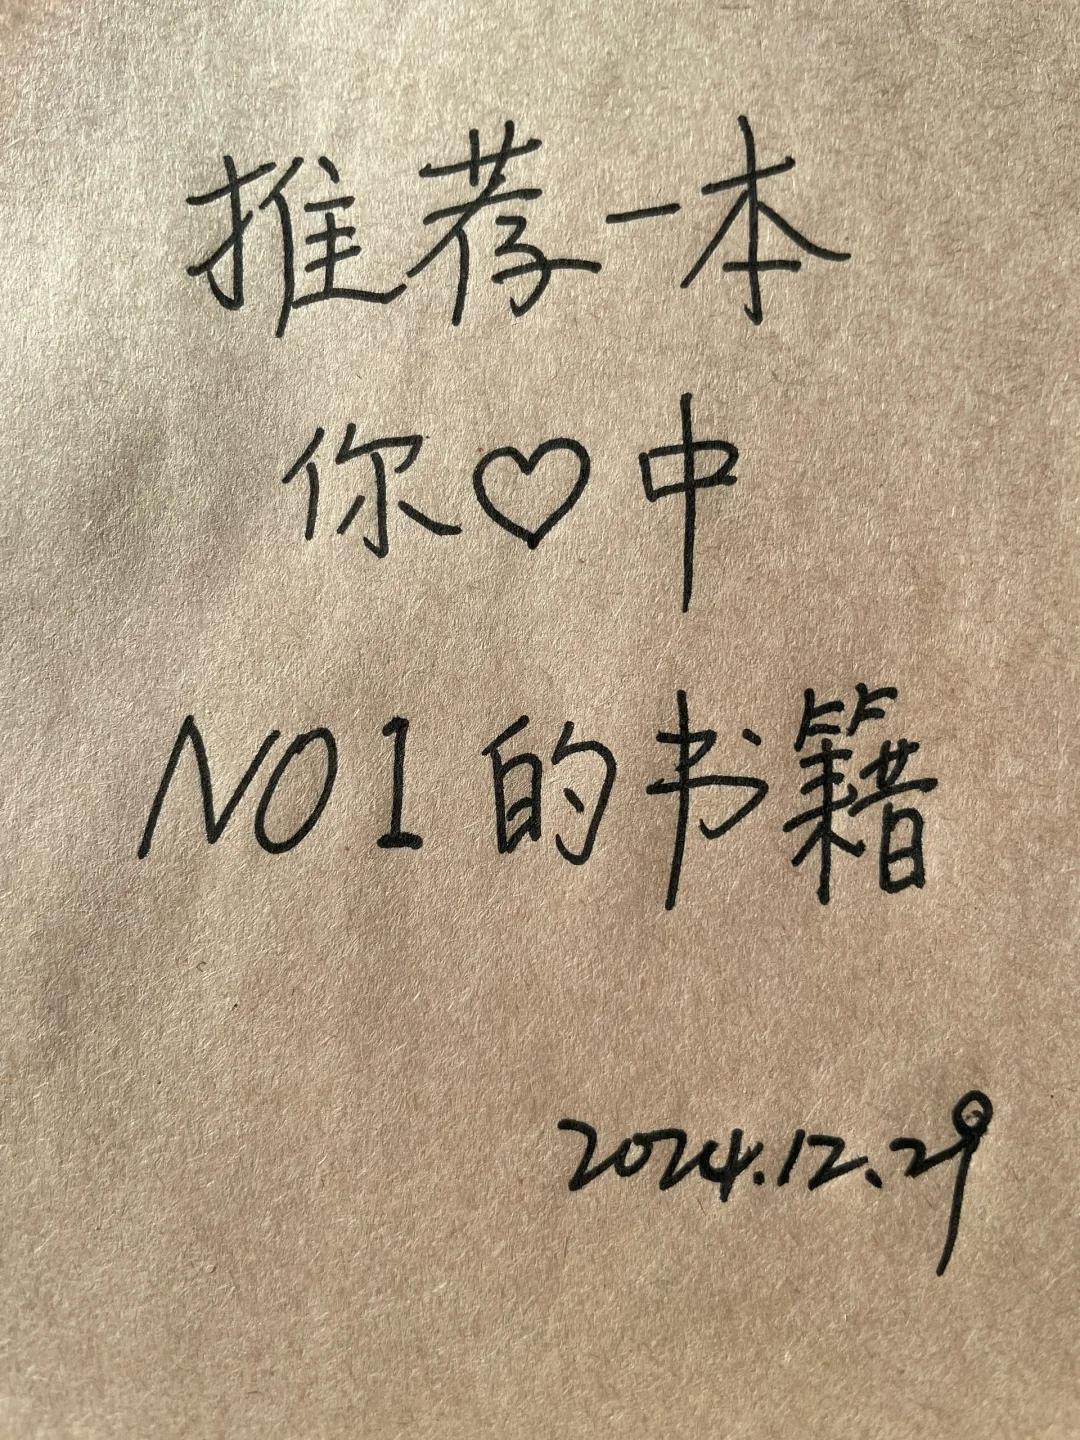 推荐一本
你♡中
NO1的书籍
2024.12.29